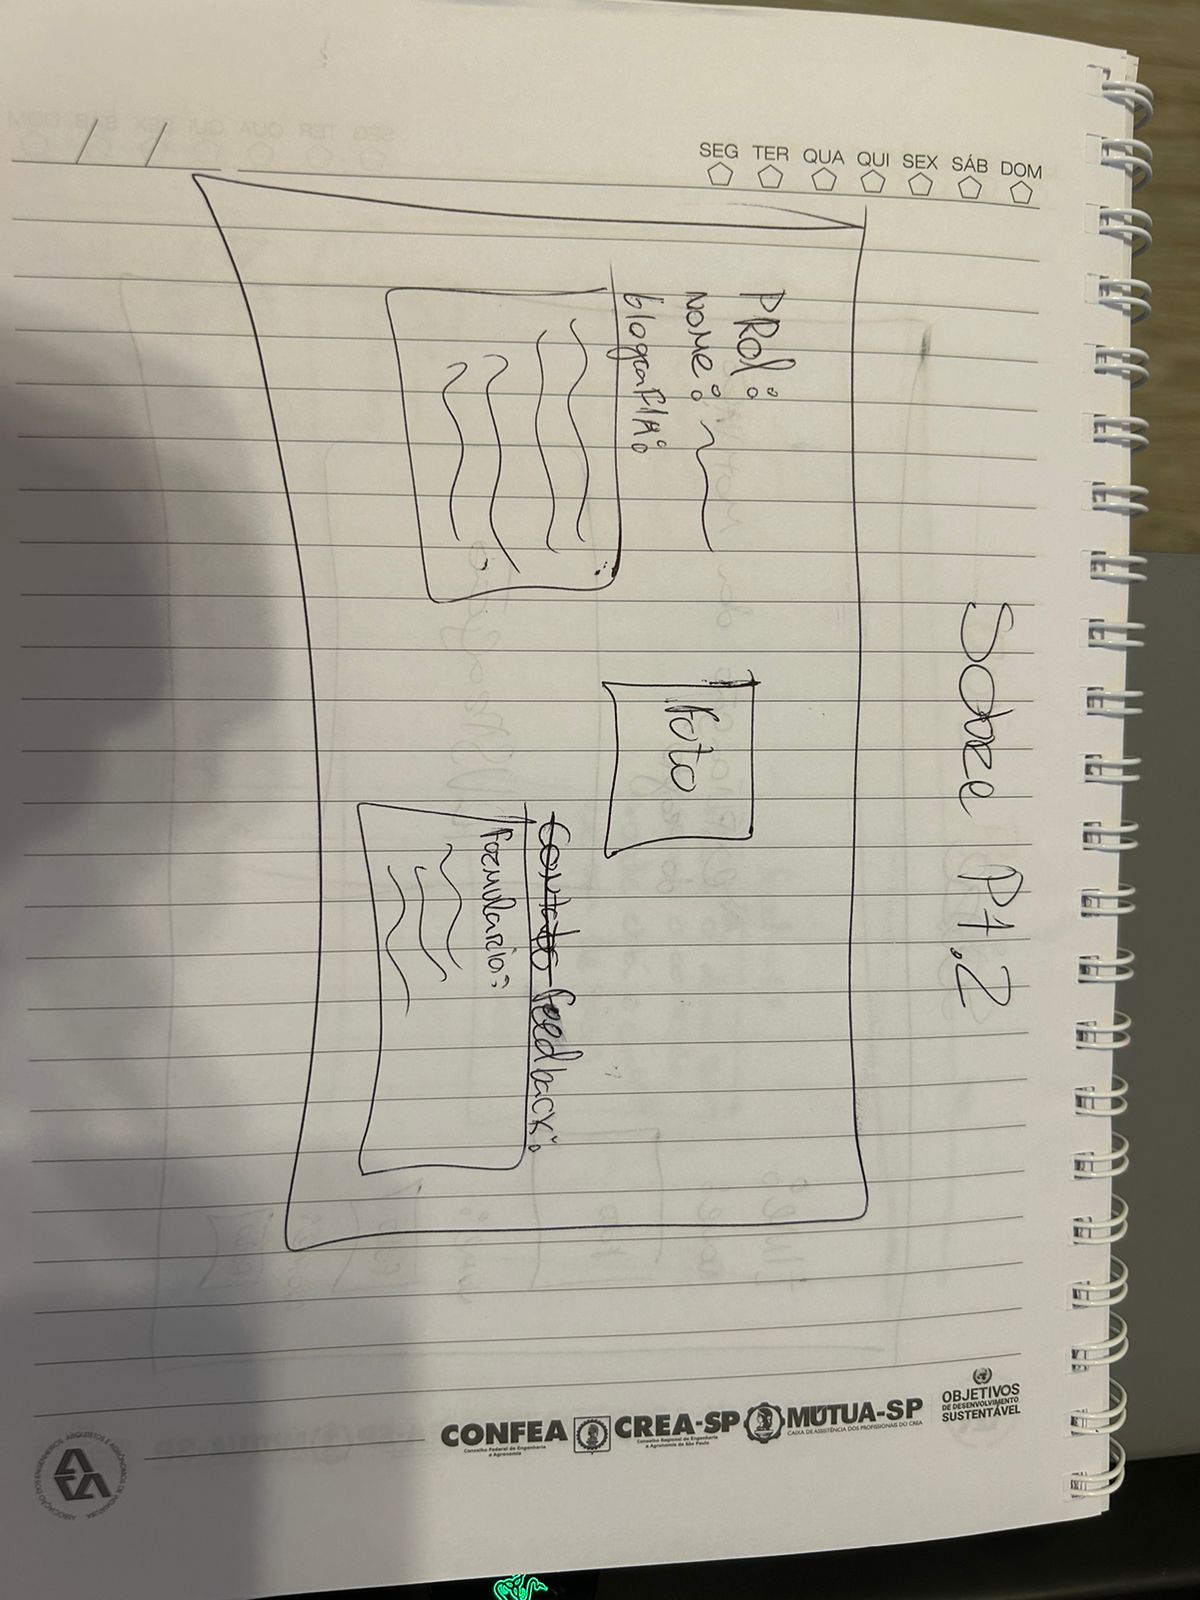 SEG TER QUA QUI SEX SÁB DOM
Sobre P1.2
PRof:
NOME:
biografIA:
foto
Contato feedback:
formulario:
CONFEA
Conselho Federal de Engenharia
e Agronomia
CREA-SP
Conselho Regional de Engenharia
e Agronomia de São Paulo
MÚTUA-SP
CAIXA DE ASSISTÊNCIA DOS PROFISSIONAIS DO CREA
OBJETIVOS
DE DESENVOLVIMENTO
SUSTENTÁVEL